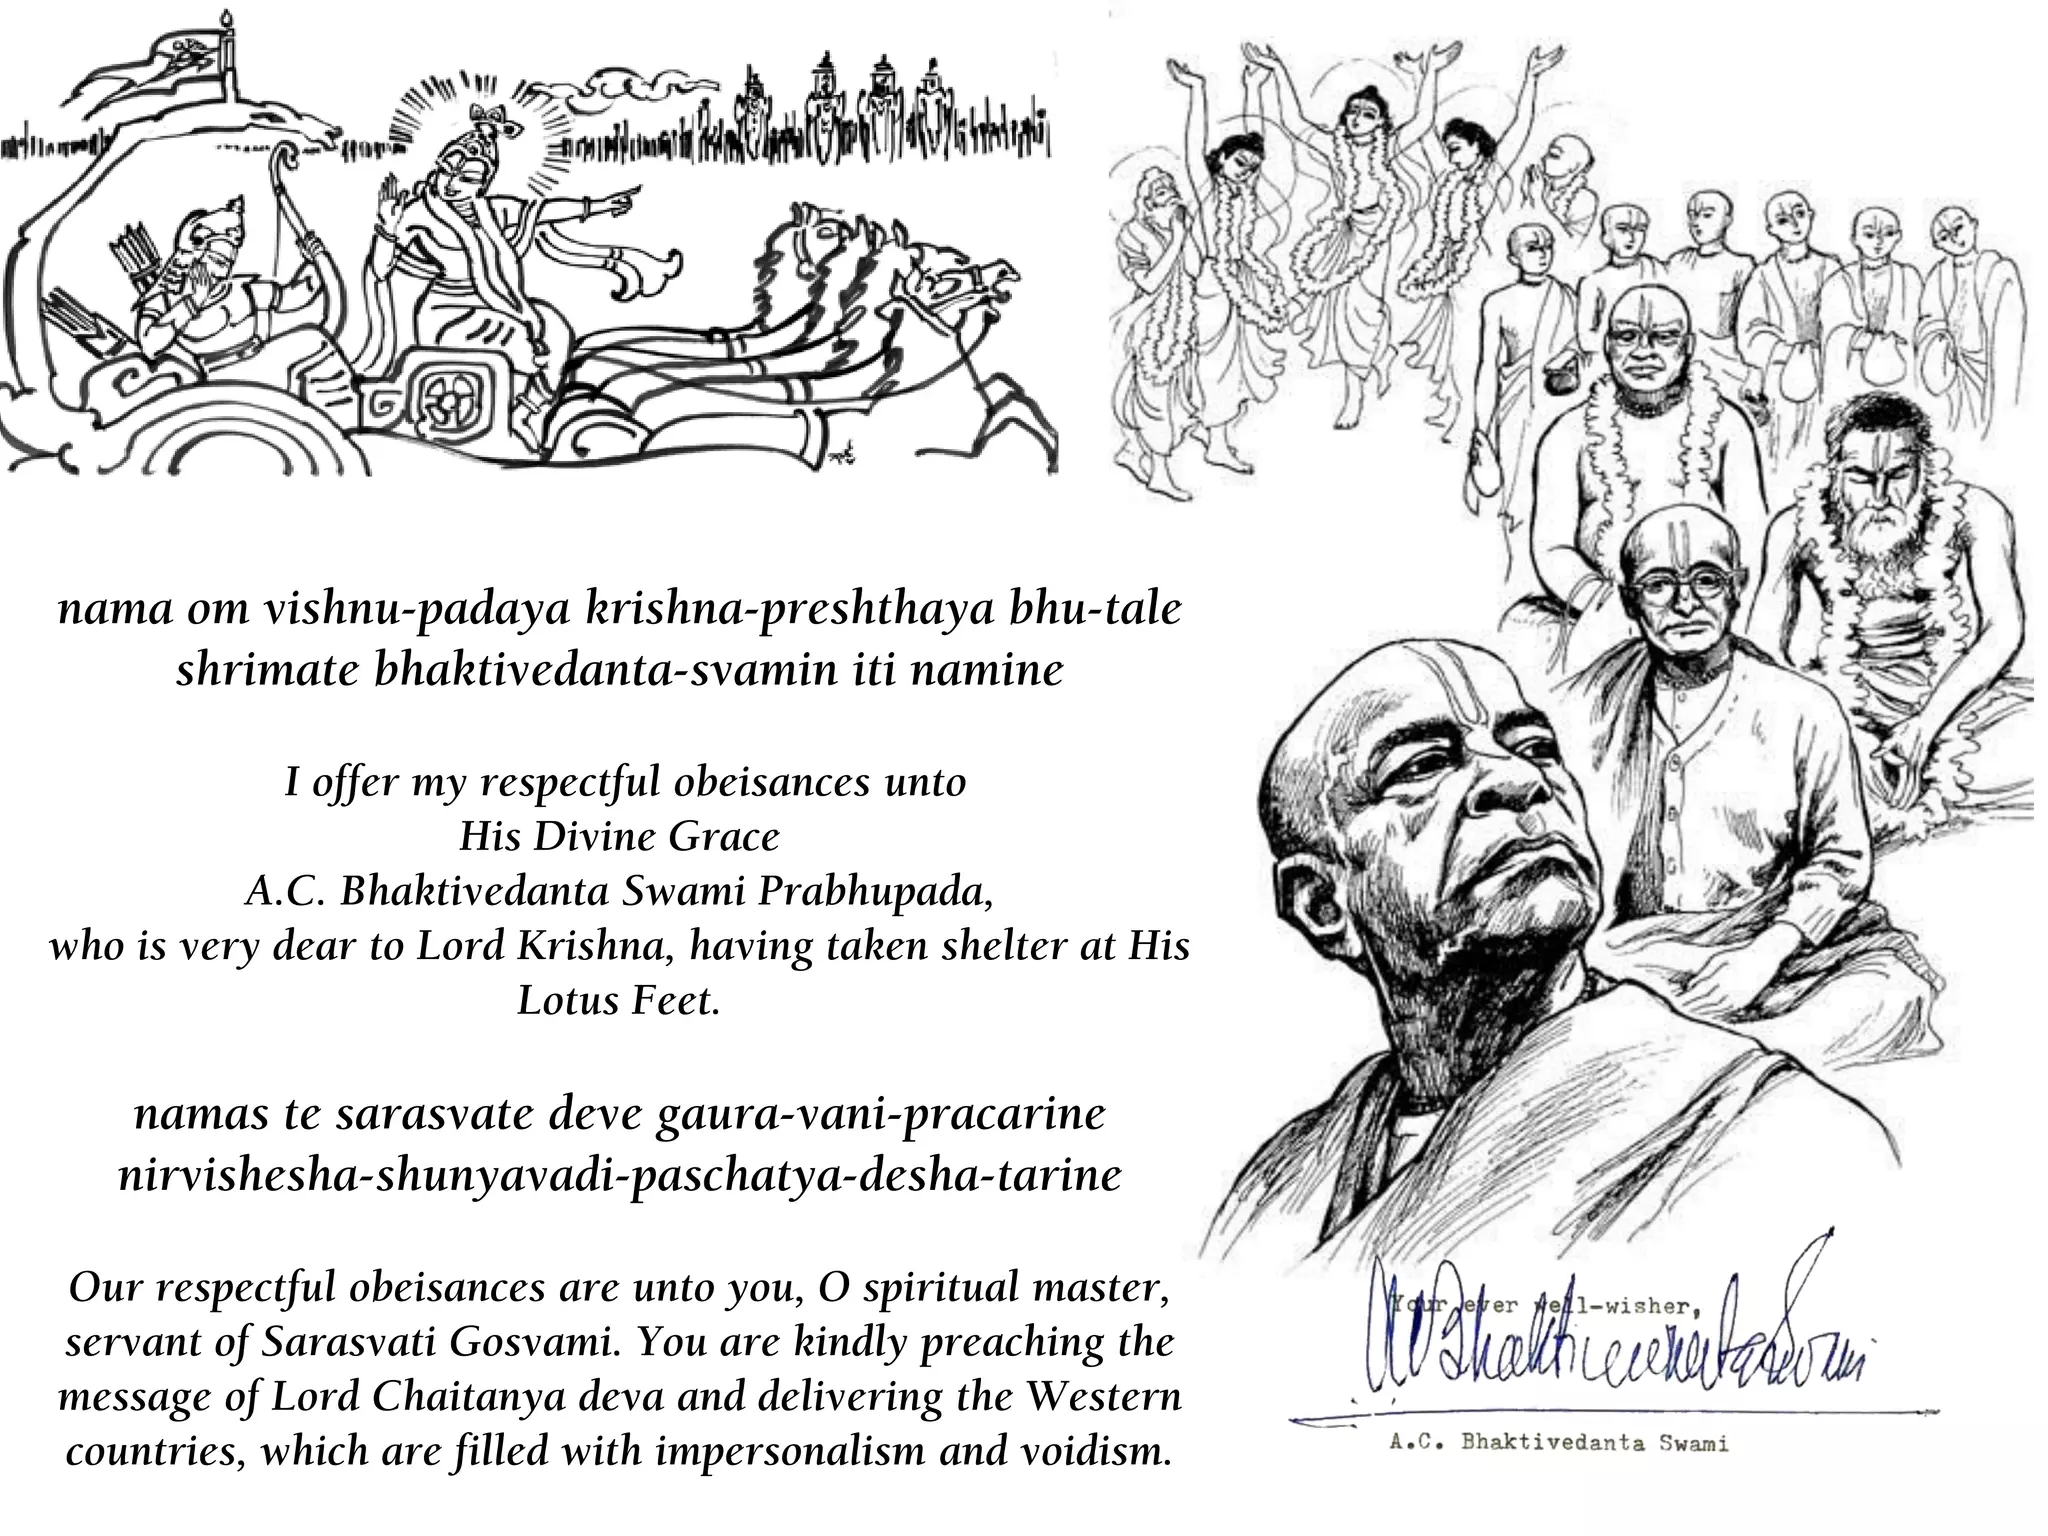 nama om vishnu-padaya krishna-preshthaya bhu-tale
shrimate bhaktivedanta-svamin iti namine
I offer my respectful obeisances unto
His Divine Grace
A.C. Bhaktivedanta Swami Prabhupada,
who is very dear to Lord Krishna, having taken shelter at His
Lotus Feet.
namas te sarasvate deve gaura-vani-pracarine
nirvishesha-shunyavadi-paschatya-desha-tarine
Our respectful obeisances are unto you, O spiritual master,
servant of Sarasvati Gosvami. You are kindly preaching the
message of Lord Chaitanya deva and delivering the Western
countries, which are filled with impersonalism and voidism.
Your ever well-wisher,
A.C. Bhaktivedanta Swami